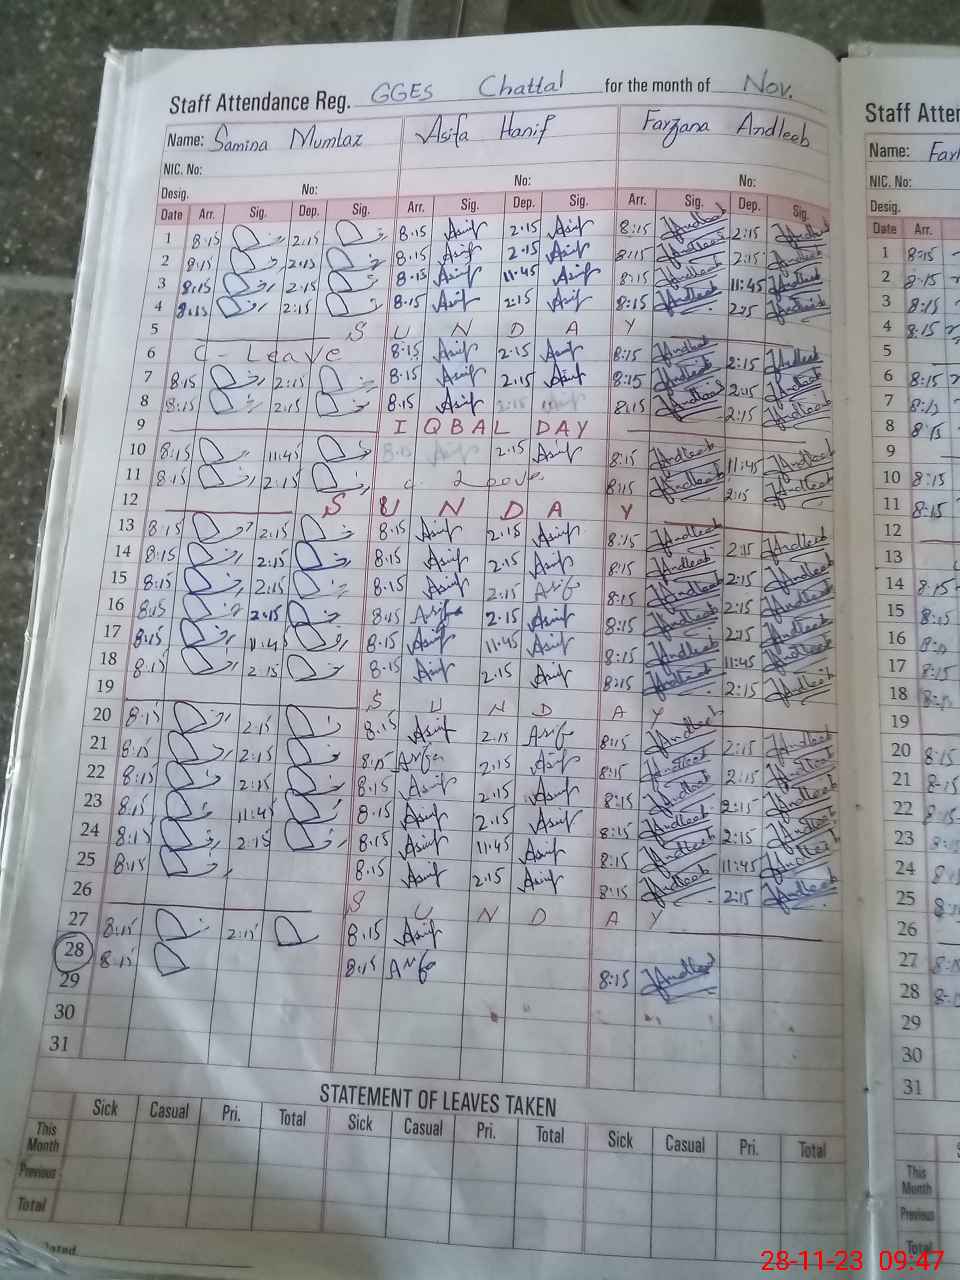 Staff Attendance Reg. GGES Chattal for the month of Nov.
Staff Atten
Name: Samina Mumtaz Asifa Hanif Farzana Andleeb
Name: Far
NIC. No:
NIC. No:
Desig. No: No: No:
Desig.
Date Arr. Sig. Dep. Sig. Arr. Sig. Dep. Sig. Arr. Sig. Dep. Sig.
Date Arr.
1 8:15 2:15 8.15 Asif 2.15 Asif 8:15 Andleeb 2:15 Andleeb
2 8:15 2:15 8.15 Asif 2.15 Asif 8:15 Andleeb 2:15 Andleeb
3 8:15 2:15 8.15 Asif 11.45 Asif 8:15 Andleeb 11:45 Andleeb
4 8:15 2:15 8.15 Asif 2:15 Asif 8:15 Andleeb 2:15 Andleeb
5 S U N D A Y
6 C - Leave 8:15 Asif 2.15 Asif 8:15 Andleeb 2:15 Andleeb
7 8:15 2:15 8.15 Asif 2.15 Asif 8:15 Andleeb 2:15 Andleeb
8 8:15 2:15 8.15 Asif 2:15 Asif 8:15 Andleeb 2:15 Andleeb
9 I Q B A L D A Y
10 8:15 11:45 8.15 Asif 2.15 Asif 8:15 Andleeb 11:45 Andleeb
11 8:15 2:15 8:15 Andleeb 2:15 Andleeb
12 S U N D A Y
13 8:15 2:15 8.15 Asif 2.15 Asif 8:15 Andleeb 2:15 Andleeb
14 8:15 2:15 8.15 Asif 2.15 Asif 8:15 Andleeb 2:15 Andleeb
15 8:15 2:15 8.15 Asif 2:15 Asifa 8:15 Andleeb 2:15 Andleeb
16 8:15 2:15 8:15 Asifa 2.15 Asif 8:15 Andleeb 2:15 Andleeb
17 8:15 11:45 8:15 Asif 11.45 Asif 8:15 Andleeb 11:45 Andleeb
18 8:15 2:15 8.15 Asif 2.15 Asif 8:15 Andleeb 2:15 Andleeb
19 S U N D A Y
20 8:15 2:15 8.15 Asif 2.15 Asifa 8:15 Andleeb 2:15 Andleeb
21 8:15 2:15 8:15 Asifa 2.15 Asif 8:15 Andleeb 2:15 Andleeb
22 8:15 2:15 8.15 Asif 2.15 Asif 8:15 Andleeb 2:15 Andleeb
23 8:15 11:45 8.15 Asif 2.15 Asif 8:15 Andleeb 2:15 Andleeb
24 8:15 2:15 8.15 Asif 11.45 Asif 8:15 Andleeb 11:45 Andleeb
25 8:15 8.15 Asif 2.15 Asif 8:15 Andleeb 2:15 Andleeb
26 S U N D A Y
27 8:15 2:15 8.15 Asif
28 8:15 8:15 Asifa 8:15 Andleeb
29
30
31
1 8:15
2 8:15
3 8:15
4 8:15
5
6 8:15
7 8:15
8 8:15
9
10 8:15
11 8:15
12
13
14 8:15
15 8:15
16 8:15
17 8:15
18 8:15
19
20 8:15
21 8-15
22 8-15
23 8:15
24 8:15
25 8:15
26
27 8-15
28 8-15
29
30
31
STATEMENT OF LEAVES TAKEN
Sick Casual Pri. Total Sick Casual Pri. Total Sick Casual Pri. Total
This Month
Previous
Total
This Month
Previous
Total
28-11-23 09:47